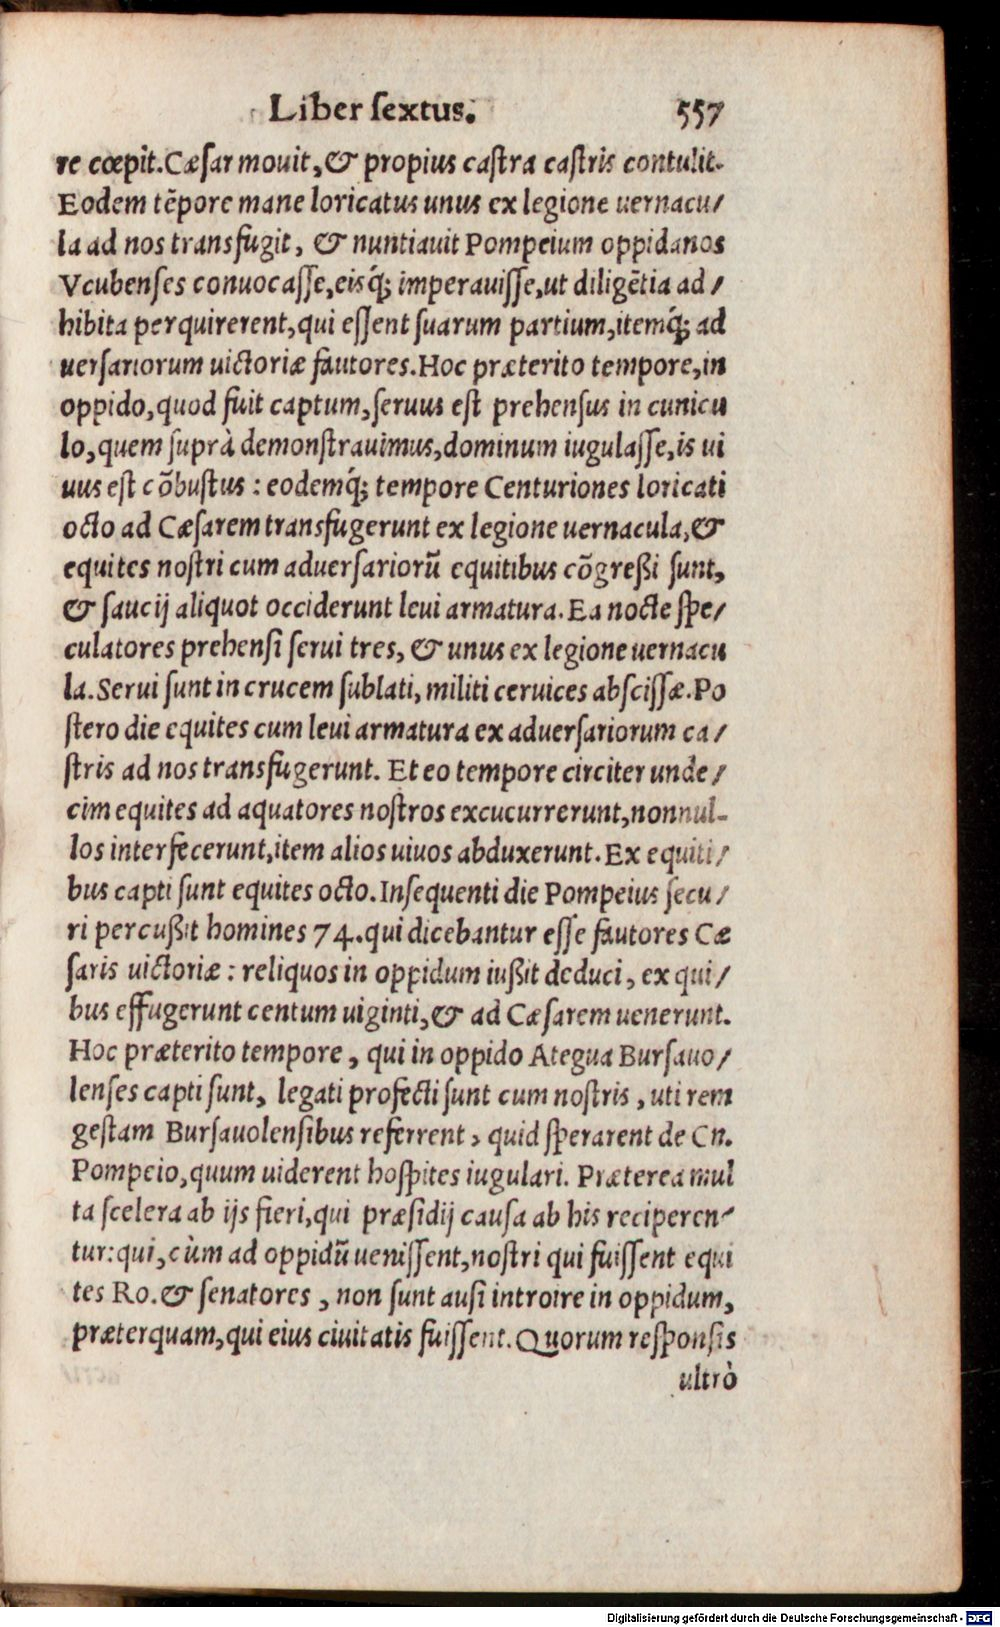 Liber ſextus. 557
re cœpit. Cæſar mouit, & propius caſtra caſtris contulit.
Eodem tẽpore mane loricatus unus ex legione uernacu/
la ad nos transfugit, & nuntiauit Pompeium oppidanos
Vcubenſes conuocaſſe, eisq́; imperauiſſe, ut diligẽtia ad/
hibita perquirerent, qui eſſent ſuarum partium, itemq́; ad
uerſariorum uictoriæ fautores. Hoc præterito tempore, in
oppido, quod fuit captum, ſeruus eſt prehenſus in cunicu
lo, quem ſuprà demonſtrauimus, dominum iugulaſſe, is ui
uus eſt cõbuſtus: eodemq́; tempore Centuriones loricati
octo ad Cæſarem transfugerunt ex legione uernacula, &
equites noſtri cum aduerſariorũ equitibus cõgreßi ſunt,
& ſaucij aliquot occiderunt leui armatura. Ea nocte ſpe/
culatores prehenſi ſerui tres, & unus ex legione uernacu
la. Serui ſunt in crucem ſublati, militi ceruices abſciſſæ. Po
ſtero die equites cum leui armatura ex aduerſariorum ca/
ſtris ad nos transfugerunt. Et eo tempore circiter unde/
cim equites ad aquatores noſtros excucurrerunt, nonnul-
los interfecerunt, item alios uiuos abduxerunt. Ex equiti/
bus capti ſunt equites octo. Inſequenti die Pompeius ſecu/
ri percußit homines 74. qui dicebantur eſſe fautores Cæ
ſaris uictoriæ: reliquos in oppidum iußit deduci, ex qui/
bus effugerunt centum uiginti, & ad Cæſarem uenerunt.
Hoc præterito tempore, qui in oppido Ategua Burſauo/
lenſes capti ſunt, legati profecti ſunt cum noſtris, uti rem
geſtam Burſauolenſibus referrent, quid ſperarent de Cn.
Pompeio, quum uiderent hoſpites iugulari. Præterea mul
ta ſcelera ab ijs fieri, qui præſidij cauſa ab his reciperen/
tur: qui, cùm ad oppidũ ueniſſent, noſtri qui fuiſſent equi
tes Ro. & ſenatores, non ſunt auſi introire in oppidum,
præterquam, qui eius ciuitatis fuiſſent. Quorum reſponſis
ultrò
Digitalisierung gefördert durch die Deutsche Forschungsgemeinschaft - DFG